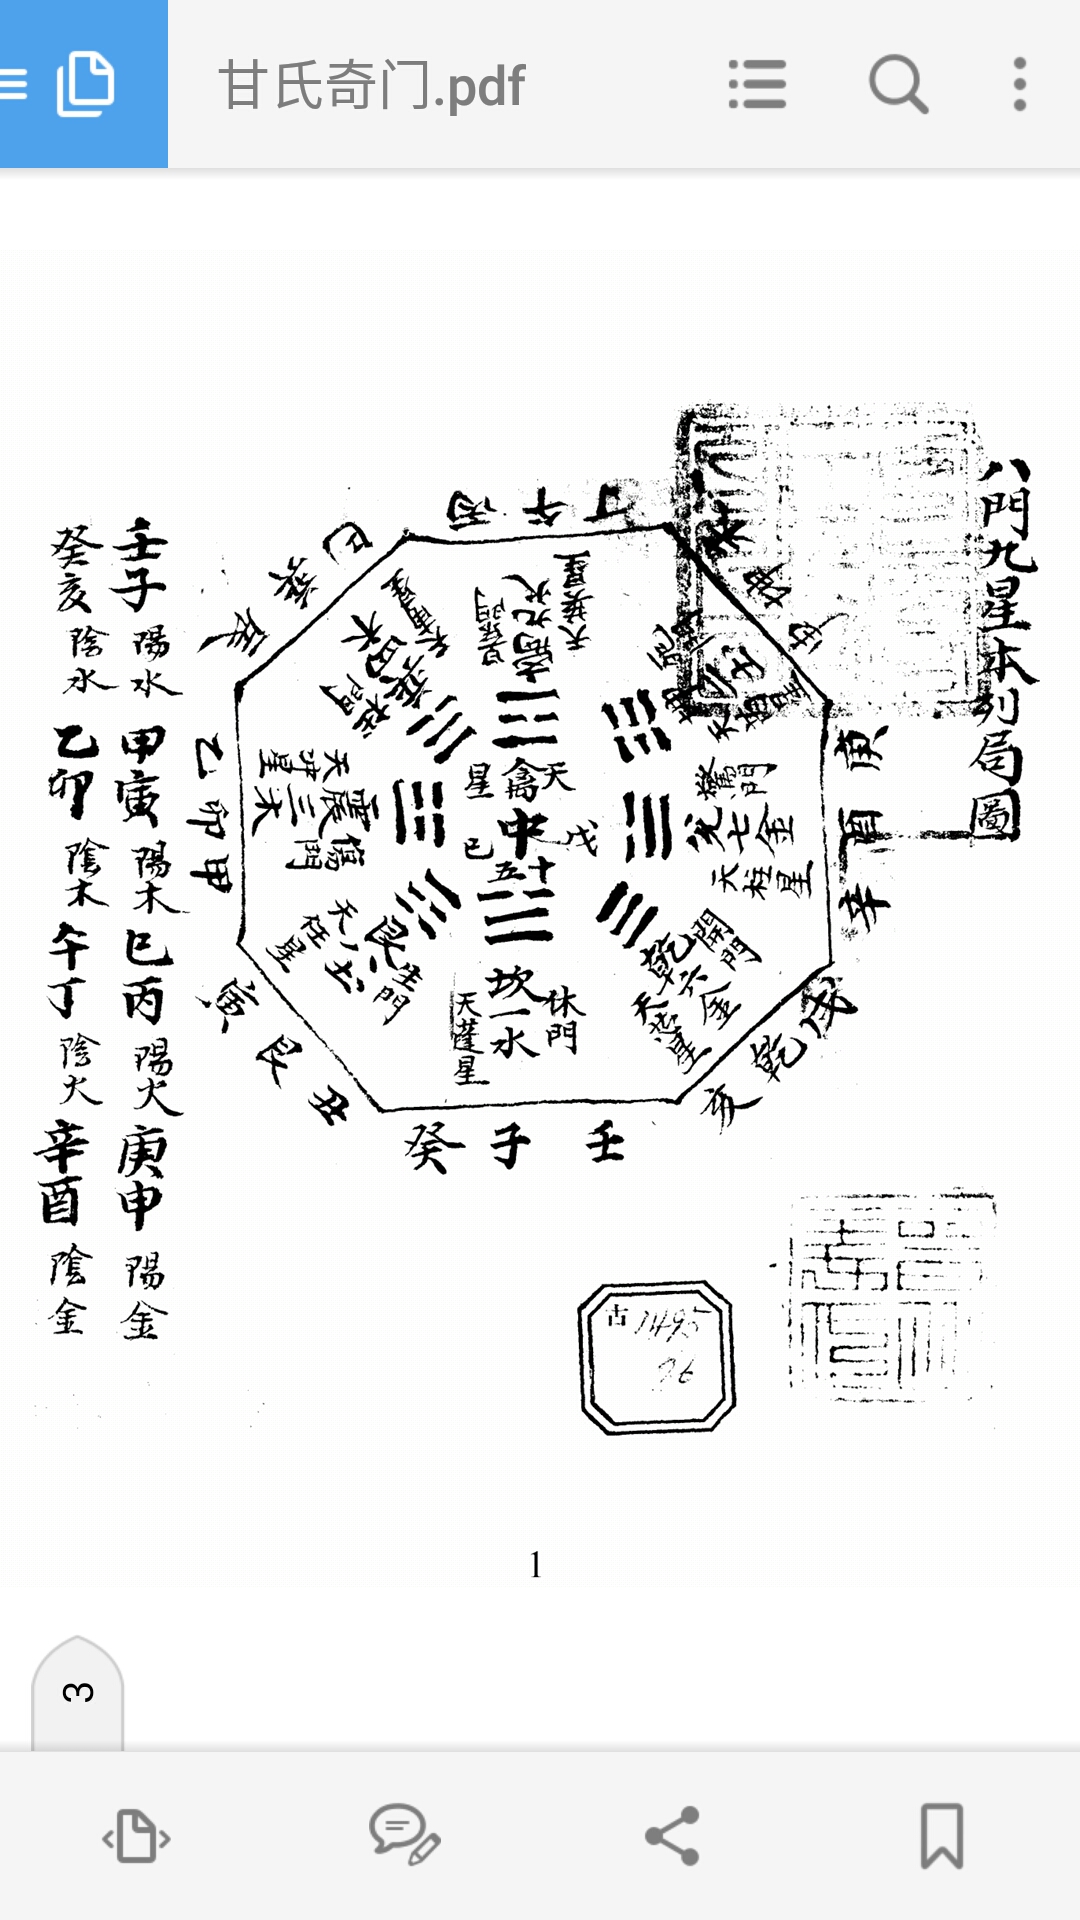 甘氏奇门.pdf
八門九星本列局圖
丁午丙
巳
巽
辰
乙卯甲
寅
艮
丑
癸子壬
亥
乾
戌
辛酉庚
坤
未
離九火
景門
天英星
巽四木
杜門
天輔星
震三木
傷門
天冲星
艮八土
生門
天任星
坎一水
休門
天蓬星
乾六金
開門
天心星
兌七金
驚門
天柱星
天禽星
戊中己
五十
壬子陽水
甲寅陽木
巳丙陽火
庚申陽金
癸亥陰水
乙卯陰木
午丁陰火
辛酉陰金
古
1495
1
3